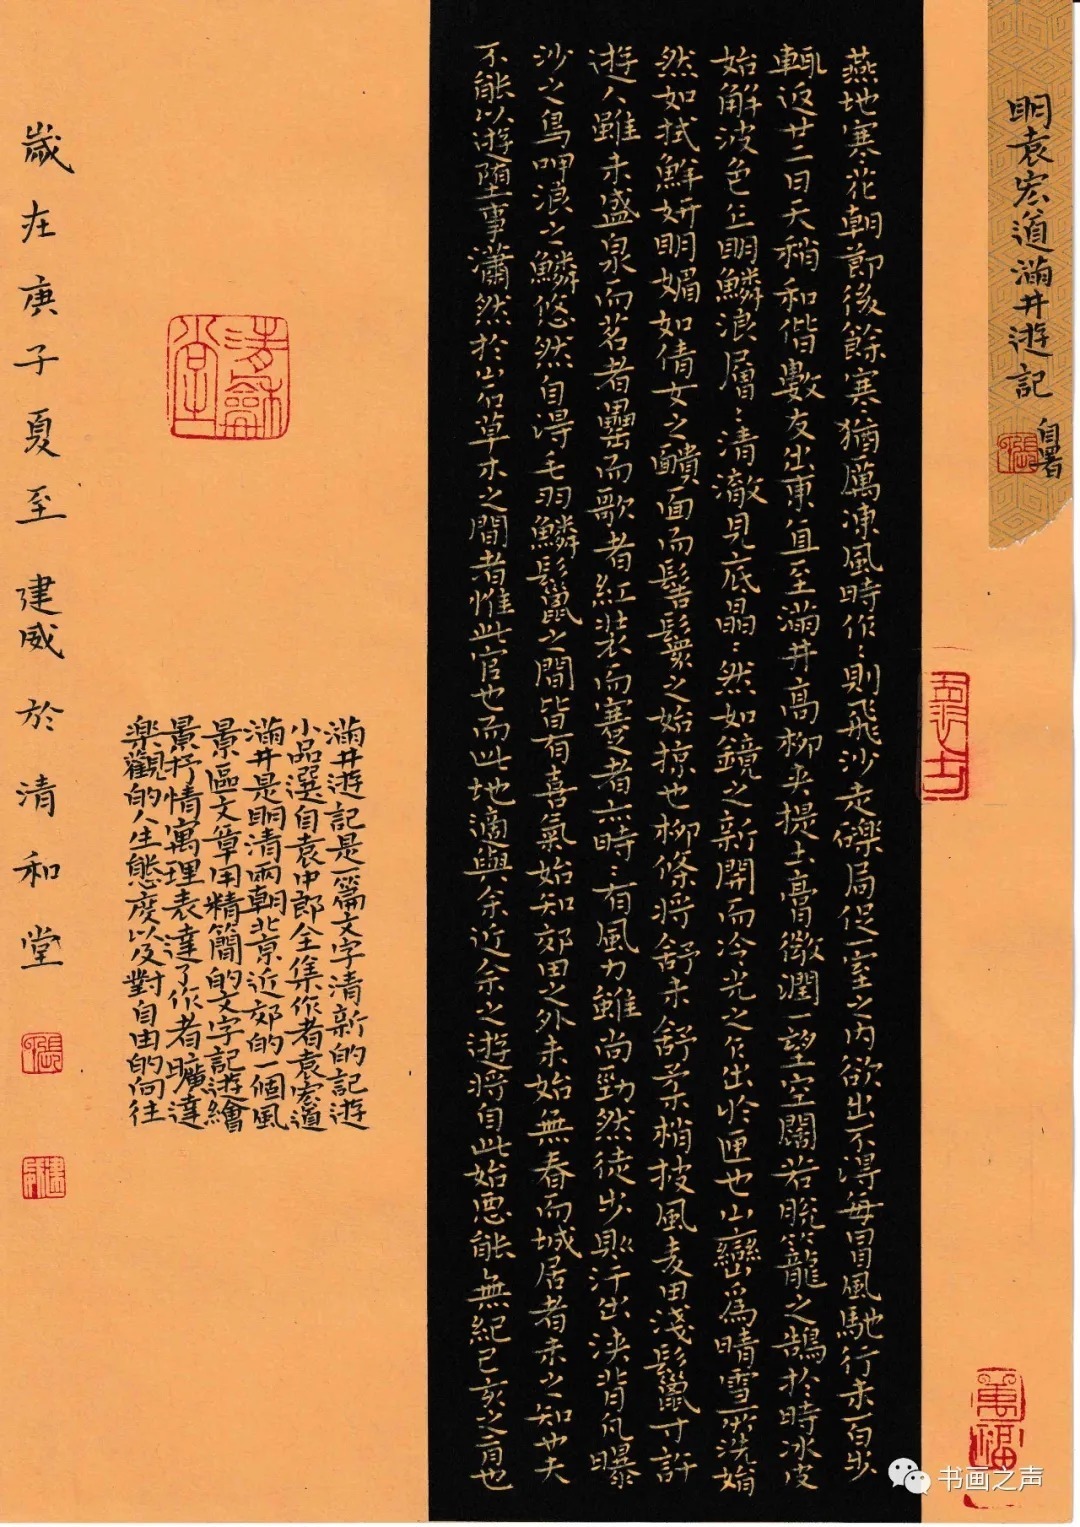 明袁宏道滿井遊記
自署
燕地寒花朝節後餘寒猶厲凍風時作〻則飛沙走礫局促一室之內欲出不得每冒風馳行未百步
輒返廿二日天稍和偕數友出東直至滿井高柳夾堤土膏微潤一望空闊若脫籠之鵠於時冰皮
始解波色乍明鱗浪層〻清澈見底晶〻然如鏡之新開而冷光之乍出於匣也山巒為晴雪所洗娟
然如拭鮮妍明媚如倩女之靧面而髻鬟之始掠也柳條將舒未舒柔梢披風麥田淺鬣寸許
遊人雖未盛泉而茗者罍而歌者紅裝而蹇者亦時〻有風力雖尚勁然徒步則汗出浹背凡曝
沙之鳥呷浪之鱗悠然自得毛羽鱗鬣之間皆有喜氣始知郊田之外未始無春而城居者未之知也夫
不能以遊墮事瀟然於山石草木之間者惟此官也而此地適與余近余之遊將自此始惡能無紀己亥之二月也
滿井遊記是一篇文字清新的記遊
小品選自袁中郎全集作者袁宏道
滿井是明清兩朝北京近郊的一個風
景區文章用精簡的文字記遊繪
景抒情寓理表達了作者曠達
樂觀的人生態度以及對自由的向往
歲在庚子夏至建威於清和堂
清龢堂
萬福
书画之声